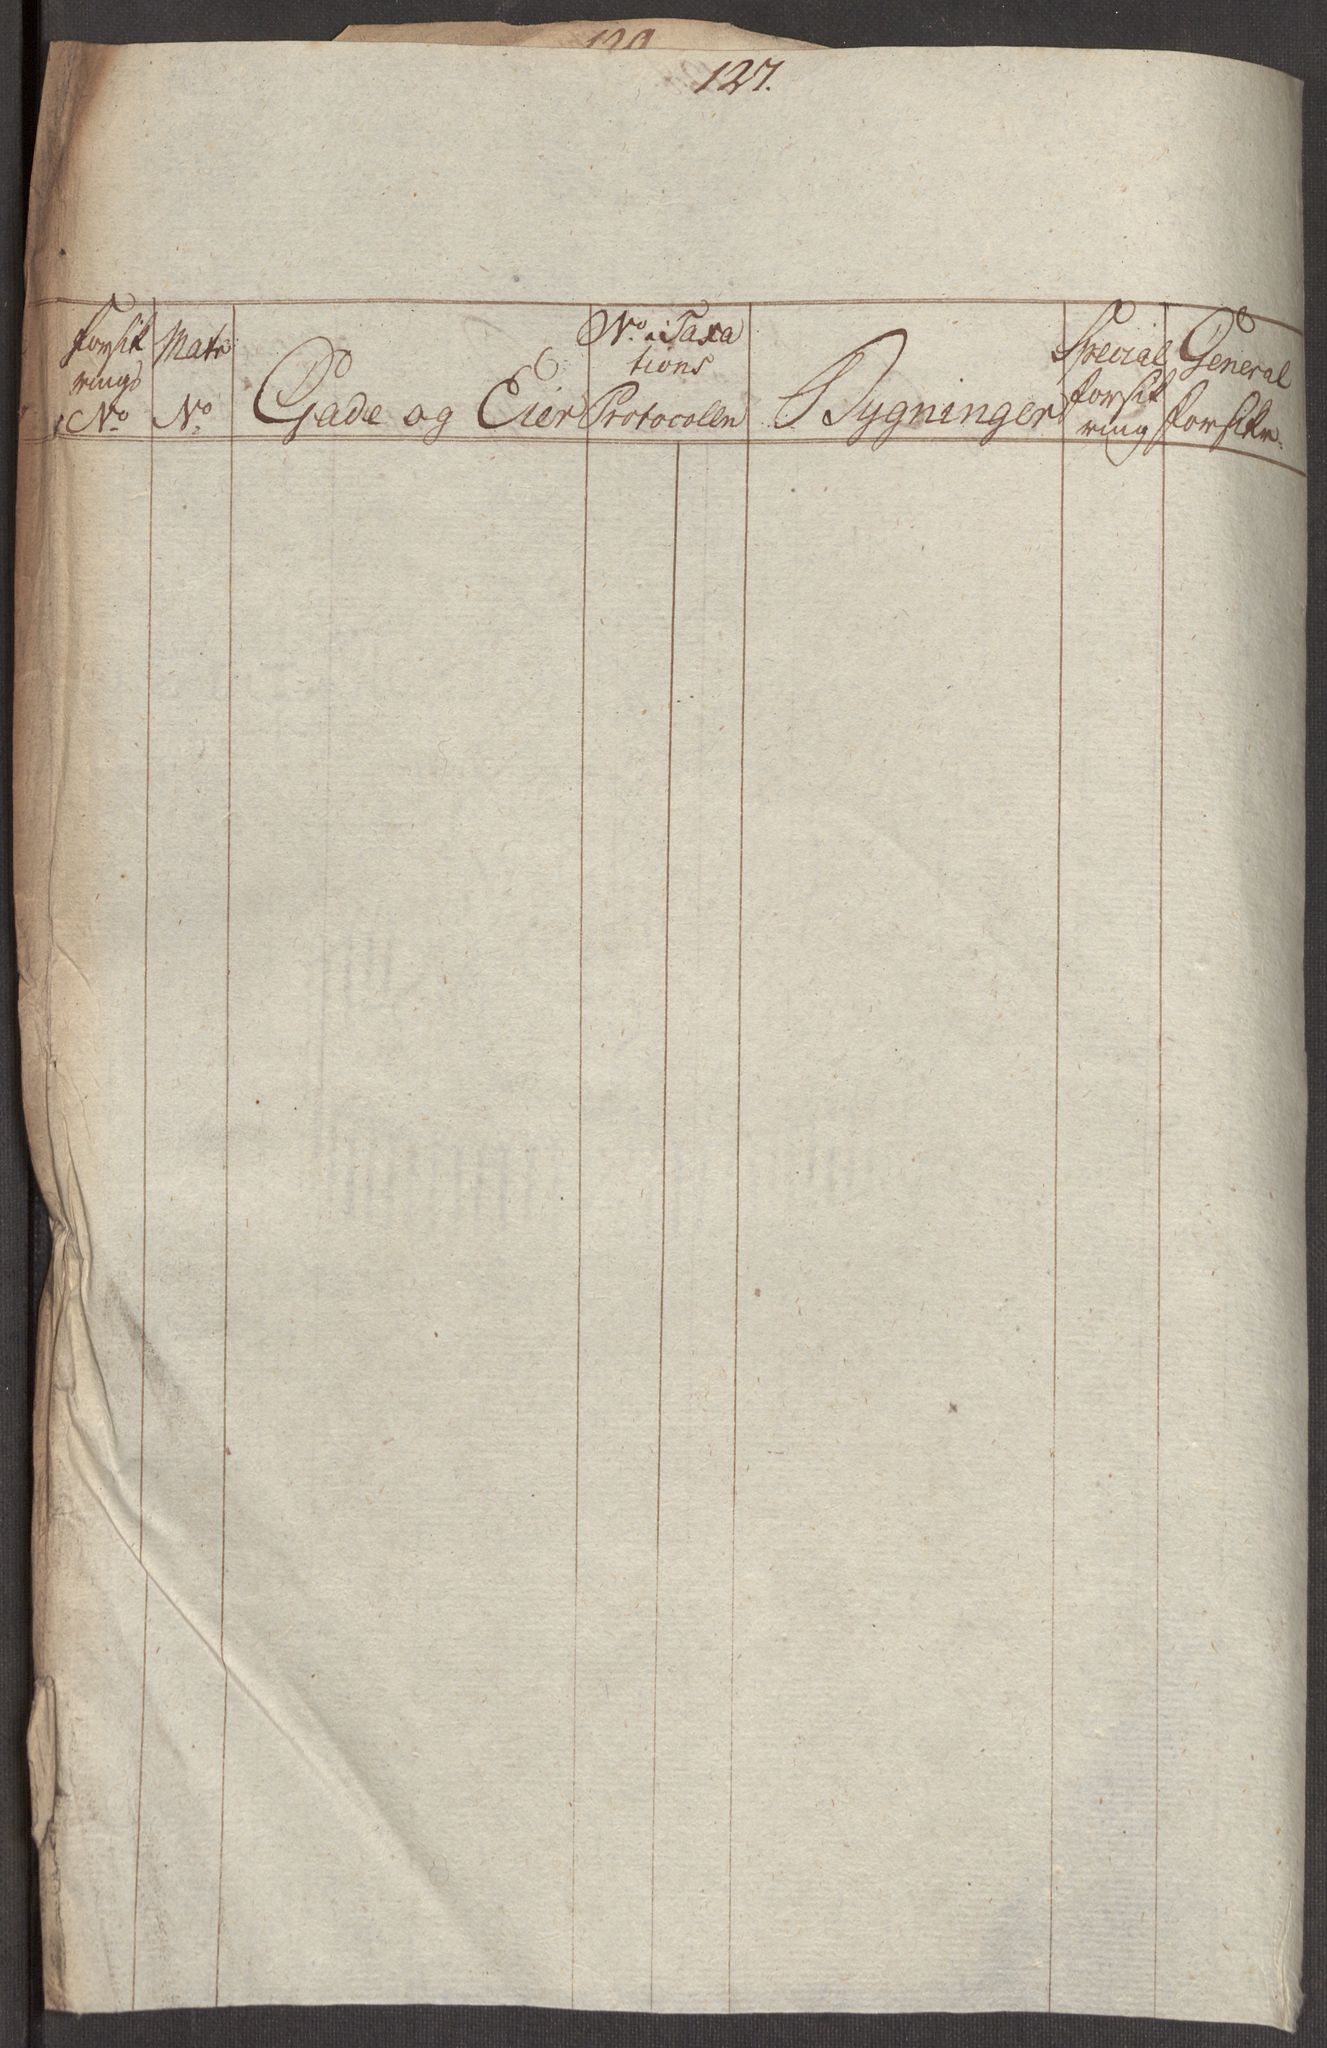 129
127.
Forsik
rings
No
Matr
No
Gade og Eier
No i Taxa
tions
Protocollen
Bygninger
Special
forsik
ring
General
forsikr.